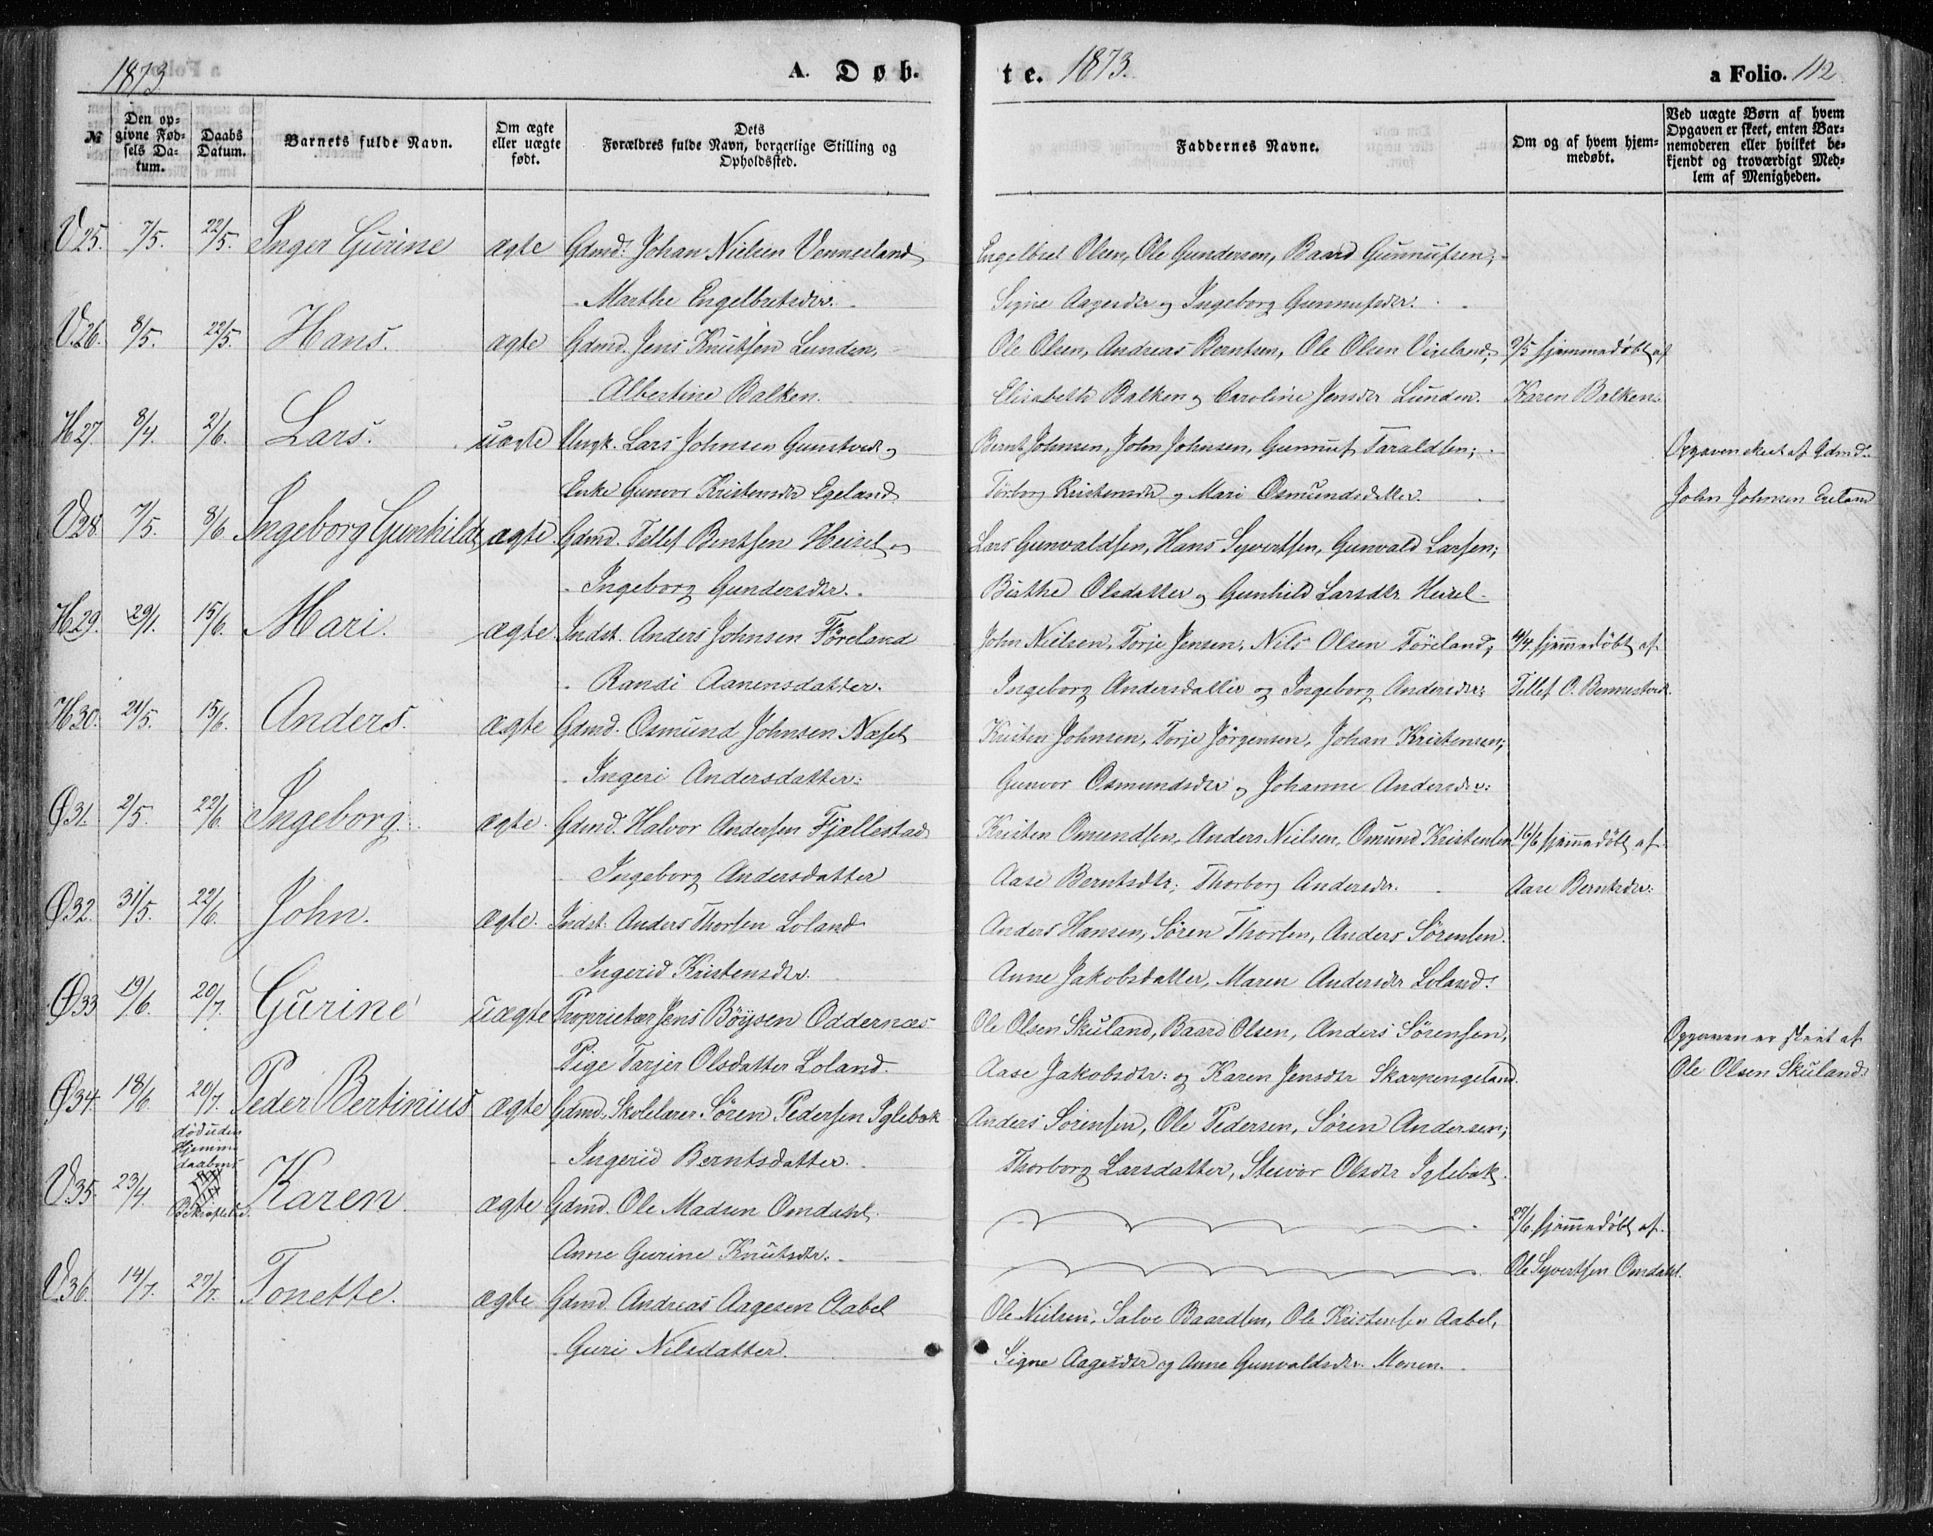 1873
A. Døb-
te. 1873.
a Folio. 112
№
Den op-
givne Fød-
sels Da-
tum.
Daabs
Datum.
Barnets fulde Navn.
Om ægte
eller uægte
født.
Dets
Forældres fulde Navn, borgerlige Stilling og
Opholdssted.
Faddernes Navne.
Om og af hvem hjem-
medøbt.
Ved uægte Børn af hvem
Opgaven er skeet, enten Bar-
nemoderen eller hvilket be-
kjendt og troværdigt Med-
lem af Menigheden.
V 25. 7/5. 22/5. Inger Gurine ægte Gdmd. Johan Nielsen Vennesland Engelbret Olsen, Ole Gundersen, Baard Gunnufsen,
Marthe Engelbretsdtr. Signe Aagesdtr og Ingeborg Gunnufsdtr.
V. 26. 8/5. 22/5. Hans. ægte Gdmd. Jens Knutsen Lunden, Ole Olsen, Andreas Berntsen, Ole Olsen Vigeland, 9/5 hjemmedøbt af
Albertine Balken. Elisabeth Balken og Caroline Jensdtr Lunden. Karen Balken.
H 27. 8/4. 2/6. Lars. uægte Ungk. Lars Johnsen Gumstved og Bernt Johnsen, John Johnsen, Gunnuf Taraldsen; Opgaven skeet af Gdmd.
Enke Gunvor Kristensdtr Egeland Torborg Kristensdtr og Mari Osmundsdatter John Johnsen Egeland
V 28. 7/5. 8/6. Ingeborg Gunhilde ægte Gdmd. Tellef Bentsen Heisel og Lars Gunvaldsen, Hans Syvertsen, Gunvald Larsen;
Ingeborg Gundersdtr. Birthe Olsdatter og Gunhild Larsdtr Heisel
H 29. 29/1. 15/6. Mari. ægte Indst. Anders Johnsen Föreland John Nielsen, Torje Jensen, Nils Olsen Föreland, 14/4. hjemmedøbt af
Randi Aanensdatter. Ingeborg Andersdatter og Ingeborg Andersdtr: Tellef O. Bennestved.
H 30. 21/5. 15/6. Anders. ægte Gdmd. Osmund Johnsen Næset Kristen Johnsen, Torje Jörgensen, Johan Kristensen;
Ingeri Andersdatter: Gunvor Osmundsdtr og Johanne Andersdtr:
Ø 31. 2/5. 22/6. Ingeborg. ægte. Gdmd. Halvor Andersen Fjællestad Kristen Omundsen, Anders Nielsen, Omund Kristensen 16/6 hjemmedøbt af
Ingeborg Andersdatter Aase Berntsdtr; Thorborg Andersdtr. Aase Berntsdtr:
Ø 32. 31/5. 22/6. John. ægte. Indst. Anders Thorsen Loland Anders Hansen, Sören Thorsen, Anders Sörensen.
Ingerid Kristensdtr. Anne Jakobsdatter, Maren Andersdtr Loland.
Ø 33 19/6. 20/7. Gurine uægte Proprietær Jens Böysen Oddernæs Ole Olsen Skuland, Baard Olsen, Anders Sörensen, Opgaven er skeet af
Pige Tarjer Olsdatter Loland. Aase Jakobsdtr: og Karen Jensdtr Skarpengeland. Ole Olsen Skuland.
Ø 34. 18/6. 20/7. Peder Bertinius ægte Gdmd. Skolelærer Sören Pedersen Iglebæk Anders Sörensen, Ole Pedersen, Sören Andersen;
Ingerid Berntsdatter. Thorborg Larsdatter, Stevor Olsdtr Iglebæk.
død uden
Hjemme
daabens
V. 35. 23/4. Bekræftelse. Karen. ægte Gdmd. Ole Madsen Omdahl. 27/6 hjemmedøbt af
Anne Gurine Knutsdtr. Ole Syvertsen Omdahl.
V 36. 14/7. 27/7. Tonette. ægte Gdmd. Andreas Aagesen Aabel Ole Nielsen, Salve Baardsen, Ole Kristensen Aabel,
Guri Nilsdatter. Signe Aagesdtr og Anne Gunvaldsdtr. Monen.